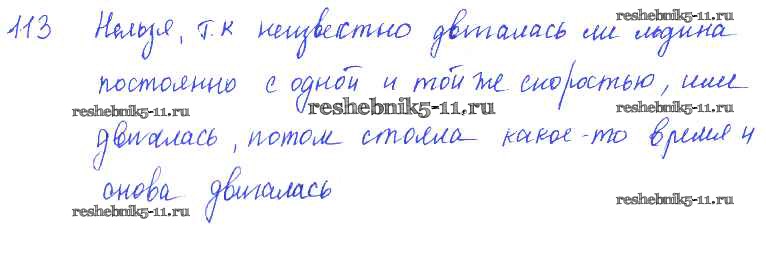 113 Нельзя, т.к неизвестно двигалась ли льдина
reshebnik5-11.ru
постоянно с одной и той же скоростью, или
reshebnik5-11.ru reshebnik5-11.ru reshebnik5-11.ru
двигалась, потом стояла какое-то время и
снова двигалась
reshebnik5-11.ru reshebnik5-11.ru